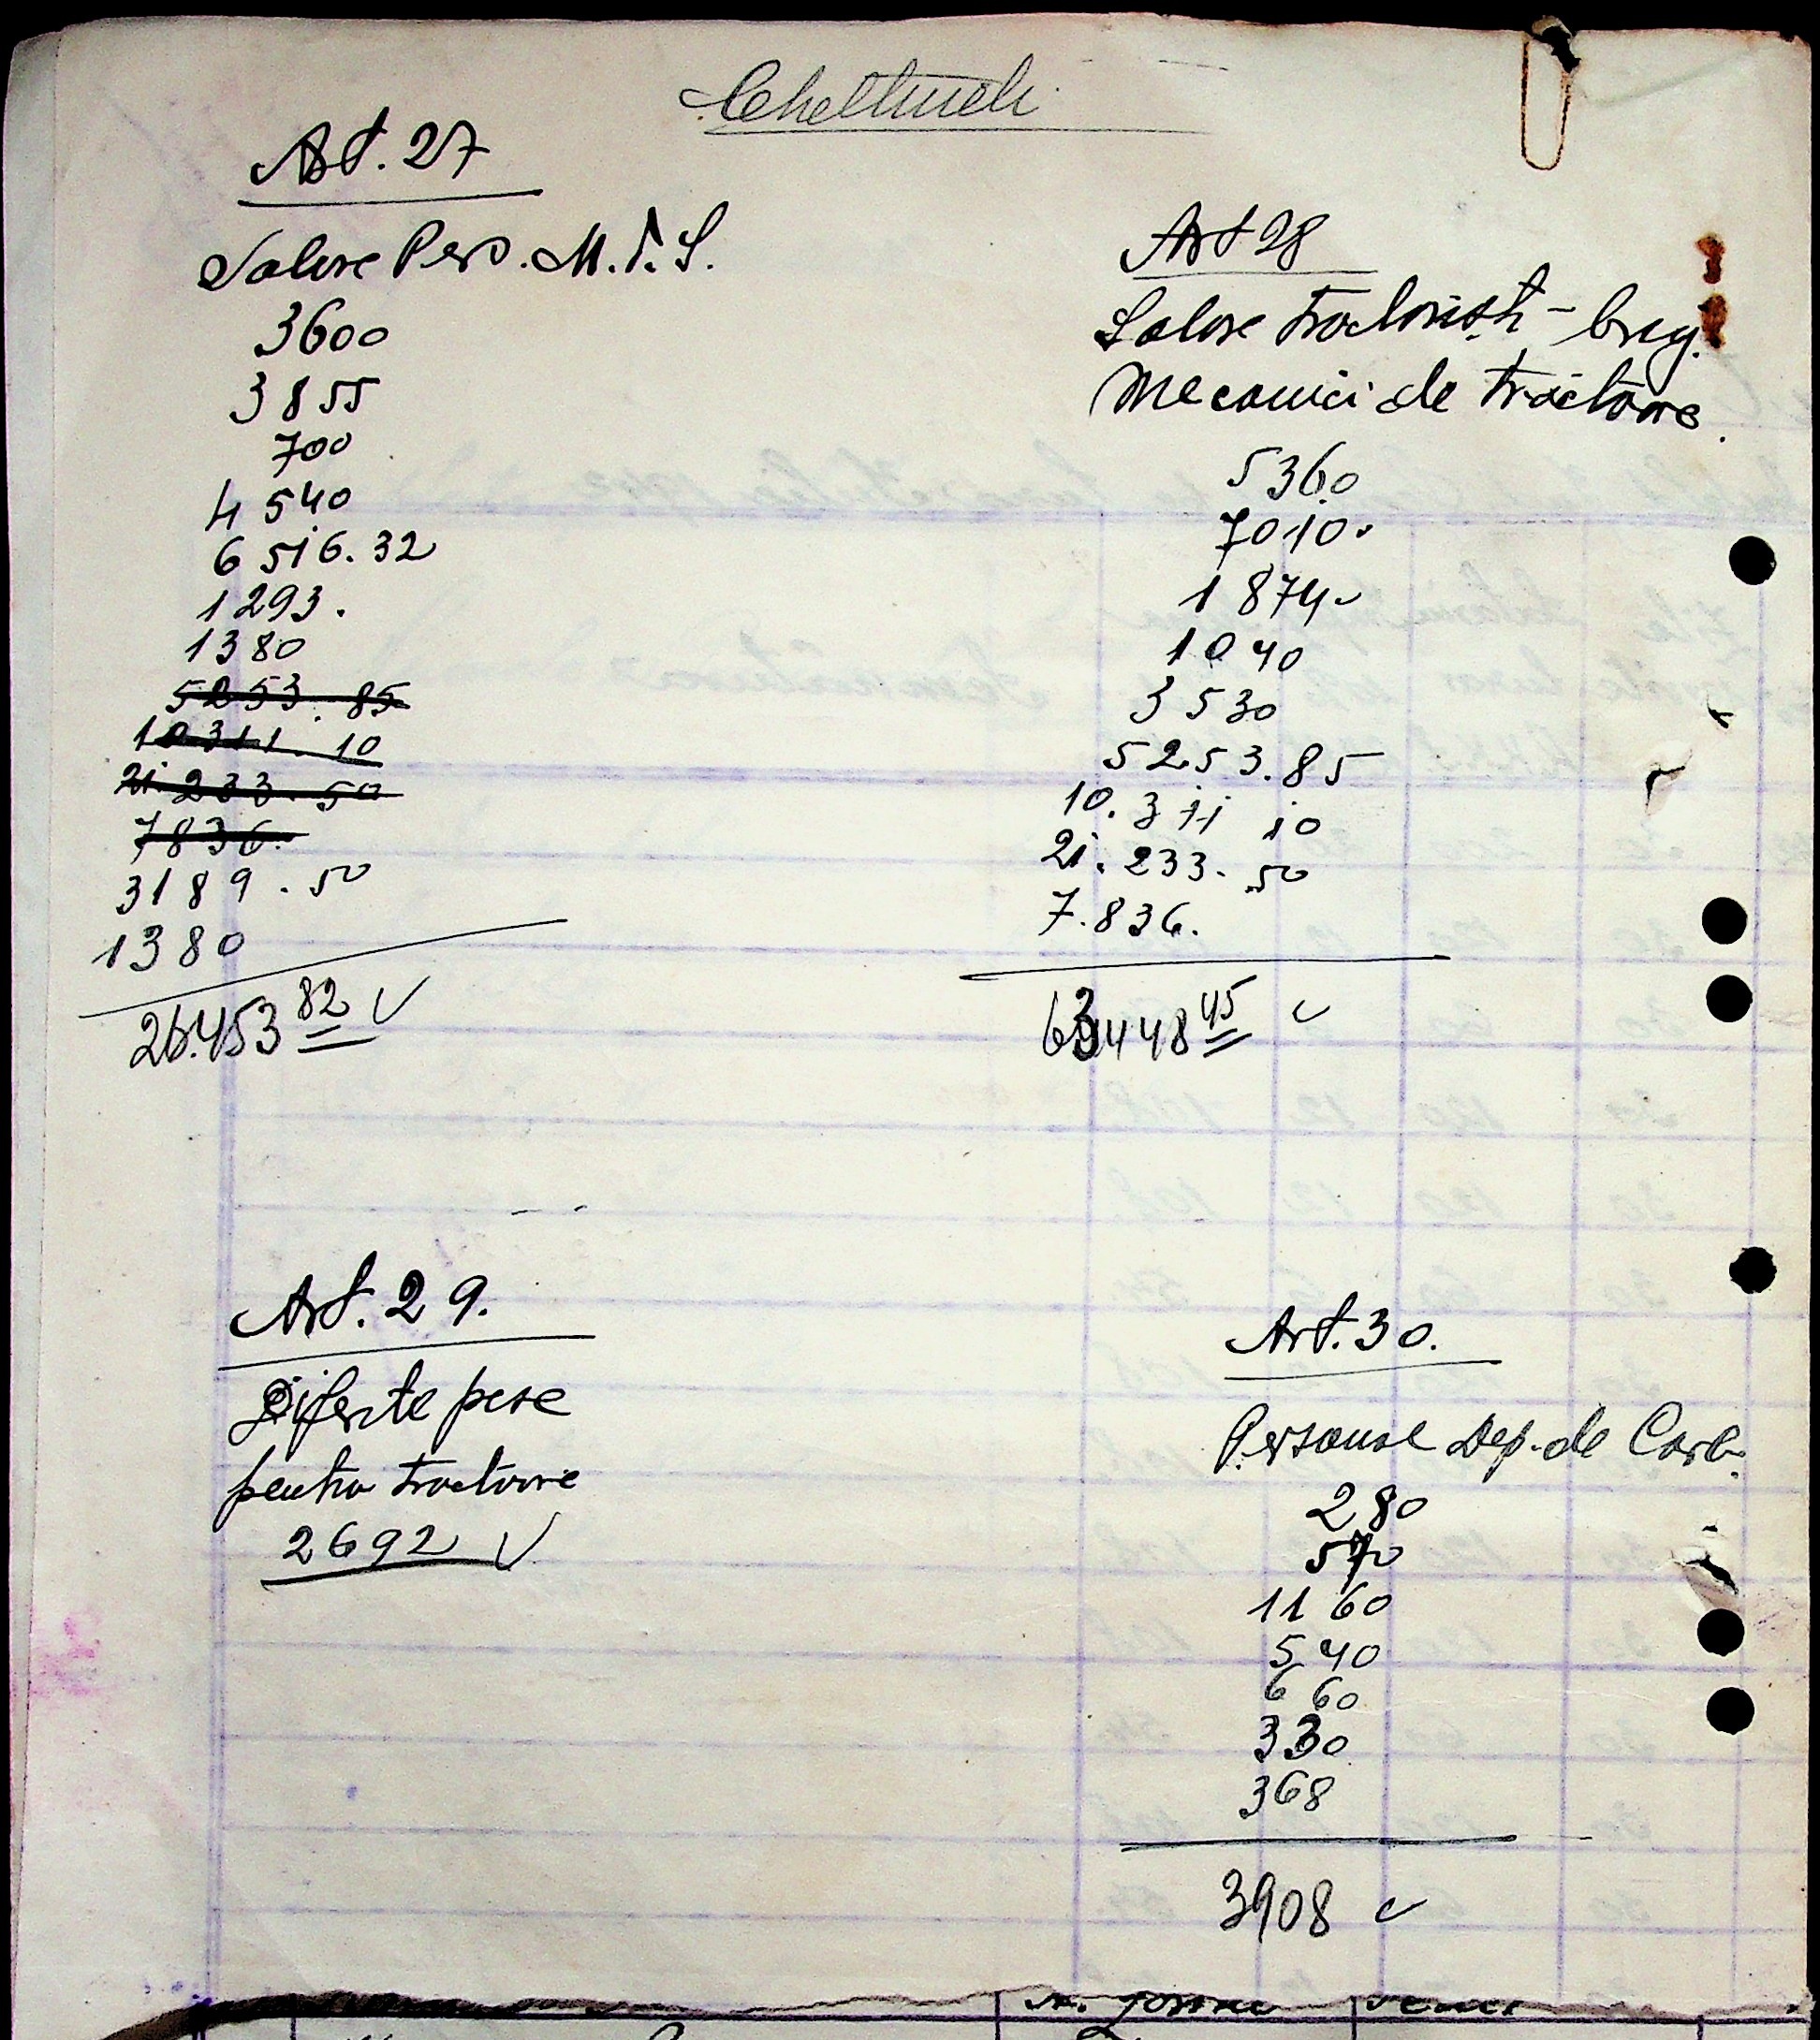 Cheltueli
Art. 27
Salare Pers. M.T.S.
3600
3855
700
4540
6516.32
1293.
1380
5253.85
10311.10
21.233.50
7836.
3189.50
1380
26.453 82
Art 28
Salare tractoristi - brig.
Mecanici de tractoare
5360
7010.
1874
1040
3530
5253.85
10.311 10
21.233.50
7.836.
63448 45
Art. 29.
Diferite pese
pentru tractoare
2692
Art. 30.
Personal Dep. de Carb.
280
570
1160
540
660
330
368
3908